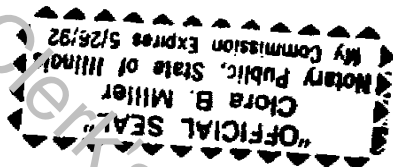 "OFFICIAL SEAL"
Clora B. Miller
Notary Public, State of Illinois
My Commission Expires 5/28/92
Clerk's